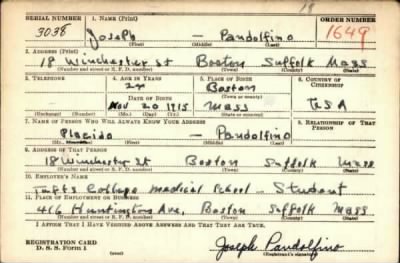 SERIAL NUMBER 1. NAME (Print) ORDER NUMBER
3038 Joseph — Pandolfino 1649
(First) (Middle) (Last)
2. ADDRESS (Print)
18 Winchester St Boston Suffolk Mass
(Number and street or R. F. D. number) (Town) (County) (State)
3. TELEPHONE 4. AGE IN YEARS 5. PLACE OF BIRTH 6. COUNTRY OF CITIZENSHIP
Boston
DATE OF BIRTH (Town or county)
Nov 20 1915 Mass USA
(Exchange) (Number) (Mo.) (Day) (Yr.) (State or country)
7. NAME OF PERSON WHO WILL ALWAYS KNOW YOUR ADDRESS 8. RELATIONSHIP OF THAT PERSON
Placido — Pandolfino
(Mr., Mrs., Miss) (First) (Middle) (Last)
9. ADDRESS OF THAT PERSON
18 Winchester St Boston Suffolk Mass
(Number and street or R. F. D. number) (Town) (County) (State)
10. EMPLOYER'S NAME
Tufts College Medical School - Student
11. PLACE OF EMPLOYMENT OR BUSINESS
416 Huntington Ave, Boston Suffolk Mass
(Number and street or R. F. D. number) (Town) (County) (State)
I AFFIRM THAT I HAVE VERIFIED ABOVE ANSWERS AND THAT THEY ARE TRUE.
REGISTRATION CARD
D. S. S. Form 1 Joseph Pandolfino
(Registrant's signature)